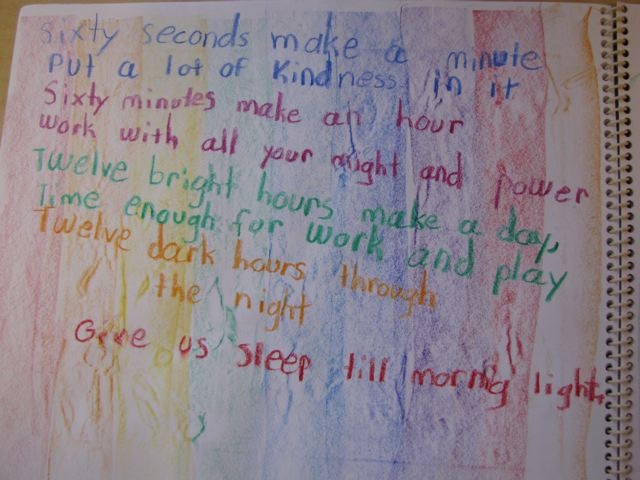 Sixty seconds make a minute
Put a lot of kindness in it
Sixty minutes make an hour
Work with all your might and power
Twelve bright hours make a day,
Time enough for work and play
Twelve dark hours through
the night
Give us sleep till mornig light.